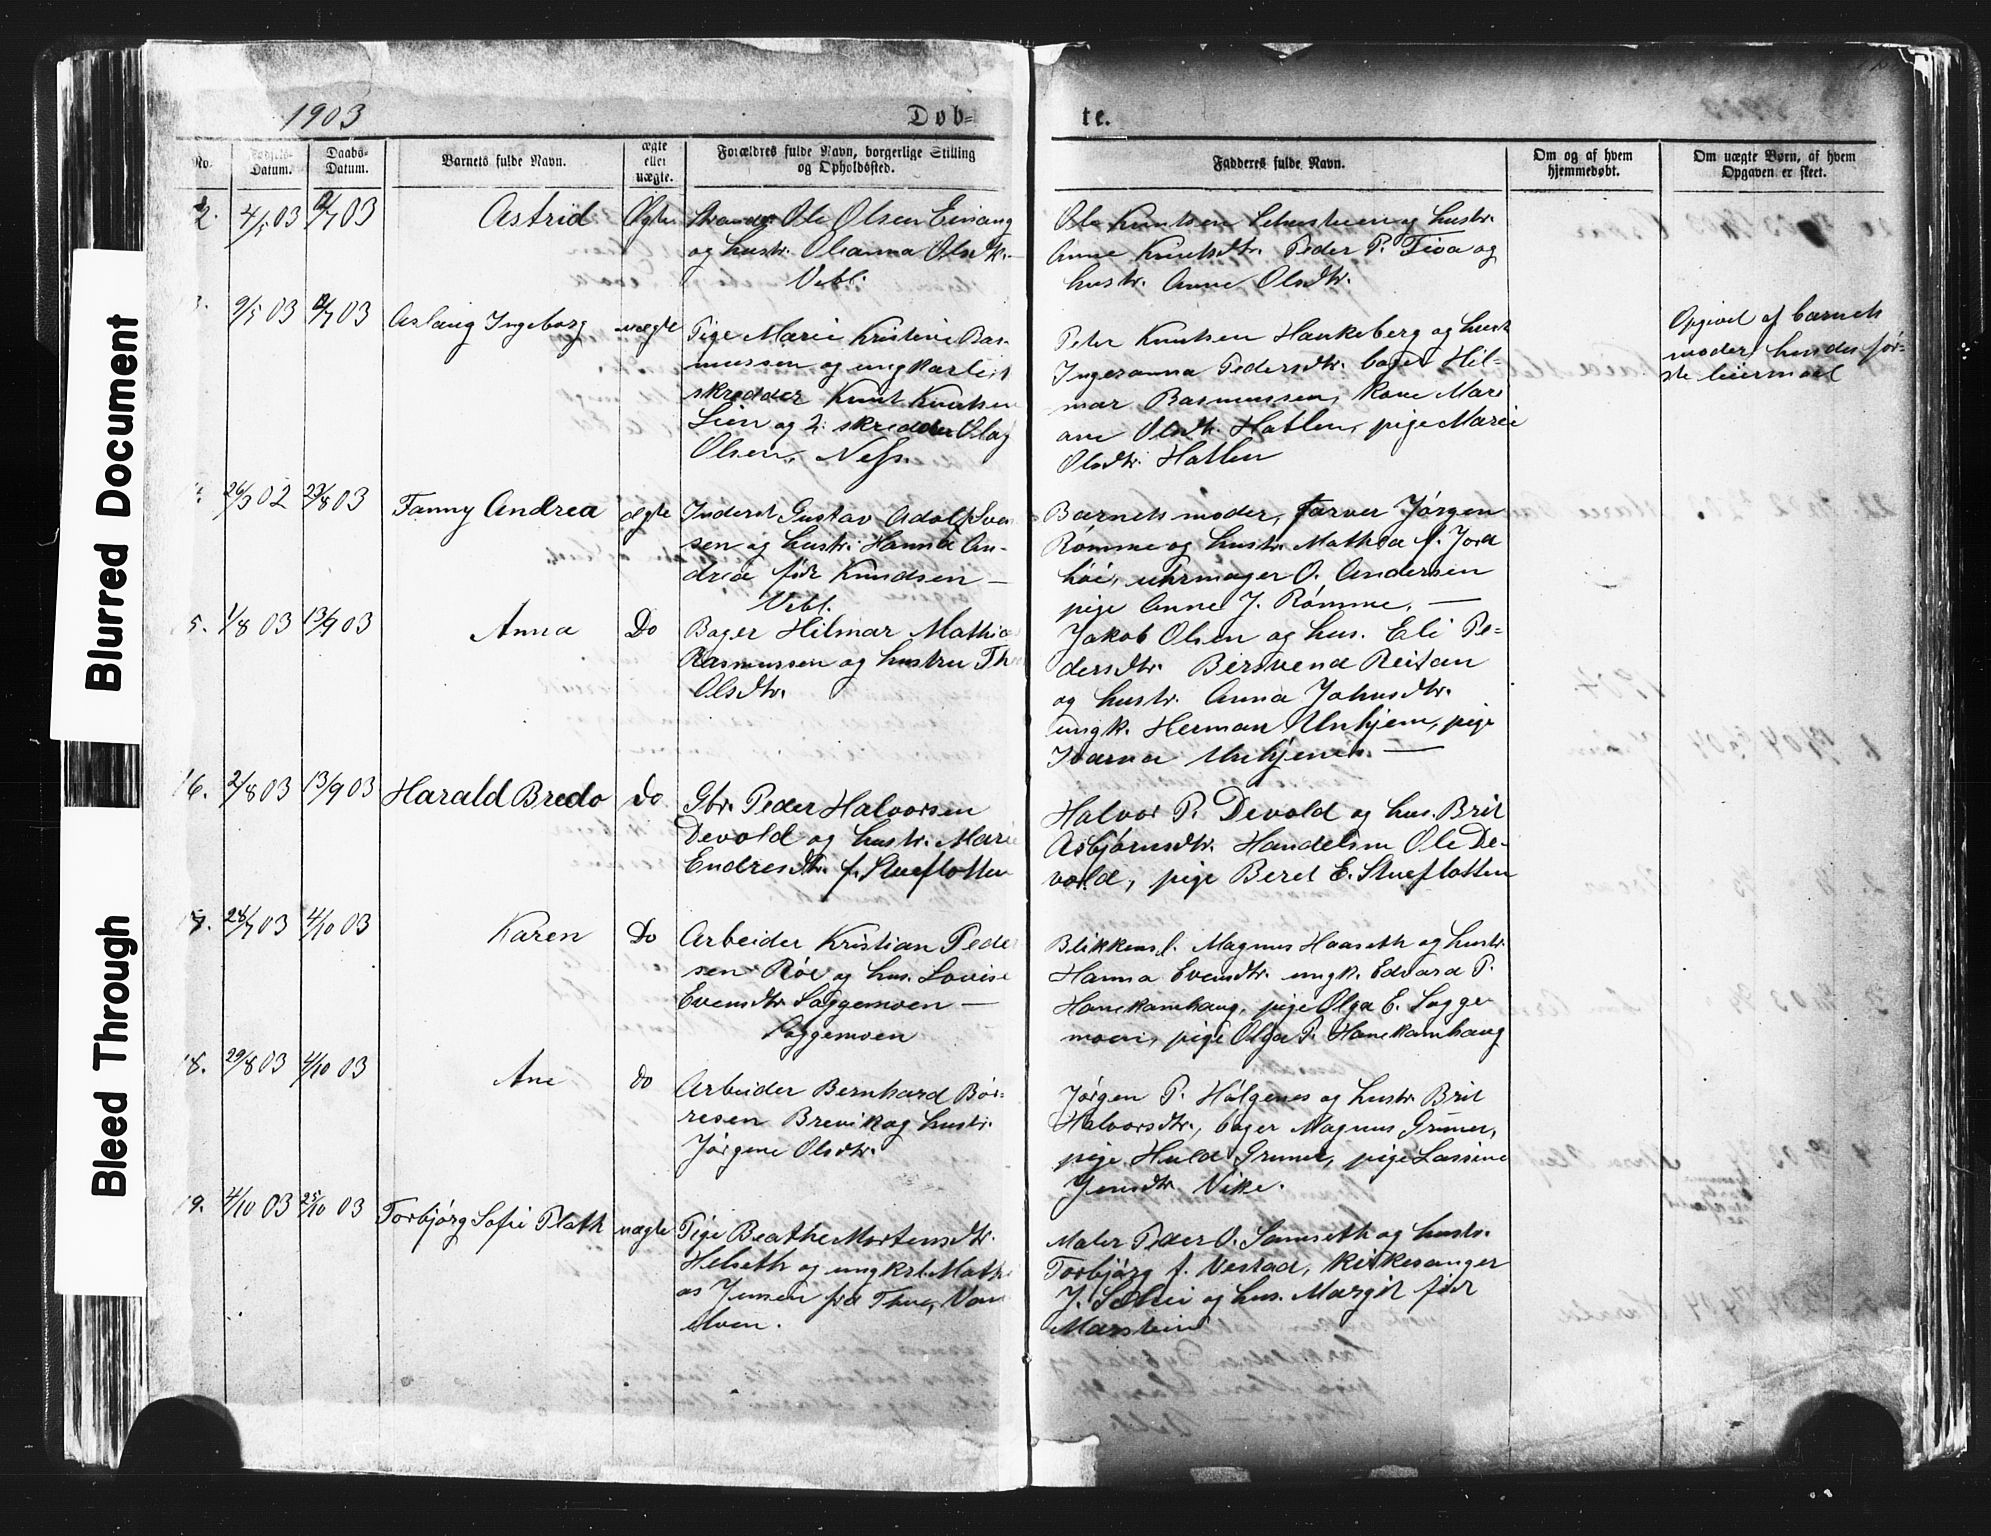 Blurred Document
Bleed Through
1903
Døb=
te.
No.
Fødsels-
Datum.
Daabs-
Datum.
Barnets fulde Navn.
ægte
eller
uægte.
Forældres fulde Navn, borgerlige Stilling
og Opholdssted.
Fadderes fulde Navn.
Om og af hvem
hjemmedøbt.
Om uægte Børn, af hvem
Opgaven er skeet.
2. 4/5 03 03 Astrid Ægte Ole Olsen Einang
og hustr. Oleanna Olsdtr.
Vebl.
Ole Knutsen og hustr.
Anne Knutsdtr. Peder P. Fiva og
hustr. Anne Olsdtr.
3. 9/5 03 03 Aslaug Ingeborg uægte Pige Marie Kristine Ras-
mussen og ungkarl
skrædder Knut Knutsen
Lien og 2: skrædder Olag
Olsen, Ness.
Peter Knutsen Hankeberg og hustr
Ingeranna Pedersdtr. bager Hil-
mar Rasmussen, Kone Mari
ane Olsdtr. Hatlen, pige Marie
Olsdtr. Hatlen
Opgivet af barnets
moder, hendes før-
ste leiermaal
26/9 02 23/8 03 Fanny Andrea ægte Inderst Gustav Adolf Sven
sen og hustr. Hanna An-
drea før Knudsen —
Vebl.
Barnets moder, farver Jørgen
Rømme og hustr. Mathea f. Jord
høi, uhrmager O. Andersen
pige Anne J. Rømme. —
5. 1/8 03 13/9 03 Anna Do Bager Hilmar Mathias
Rasmussen og hustru
Olsdtr.
Jakob Olsen og hus. Eli Pe-
dersdtr. Bersvend Reitan
og hustr. Anna Johnsdtr.
ungk. Herman Unhjem, pige
Ivarna Unhjem. —
16. 2/8 03 13/9 03 Harald Bredo Do Gbr. Peder Halvorsen
Devold og hustr. Marie
Endresdtr. f. Stueflotten
Halvor P. Devold og hus. Brit
Asbjørnsdtr. Handelsm Ole De-
vold, pige Beret E. Stueflotten
17. 24/7 03 4/10 03 Karen Do Arbeider Kristian Peder
sen Røe og hus. Lovise
Evensdtr. Soggemoen —
Soggemoen
Blikkensl. Magnus Haaseth og hustr.
Hanna Evensdtr. ungk. Edvard P.
Hanekamhaug, pige Olga E. Sogge
moen, pige Olga P. Hanekamhaug
18. 29/8 03 4/10 03 Ane Do Arbeider Bernhard Bør-
resen Brevik og hustr.
Jørgine Olsdtr.
Jørgen P. Hølgenes og hustr. Brit
Halvorsdtr., bager Magnus Grüner,
pige Hulda Gruner, pige Lassine
Jensdtr. Vike.
19. 4/10 03 25/10 03 Torbjørg Sofie Plath uægte Pige Beathe Mortensdtr.
Helseth og ungkrl. Mathi
as Jensen fra
elven.
Maler Peder O. Sæmseth og hustr.
Torbjørg f. Vestad, kirkesanger
J. Sæhei og hus. Margit før
Marstein